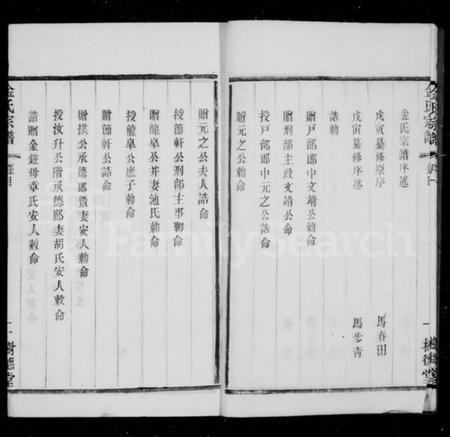 金氏宗譜
金氏宗譜序述
戊寅纂修原序 馬春田
戊寅纂修序述 馬步青
誥勅
贈戶部郎中文靖公勅命
贈刑部主政文靖公命
授戶部郎中元之公誥命
贈元之公勅命
樹德堂
金氏宗譜
贈元之公夫人誥命
授節軒公刑部主事勅命
贈龍阜公并妻池氏勅命
授龍阜公庶子勅命
贈節軒公誥命
贈拱公承德郎暨妻安人勅命
授汝升公階承德郎妻胡氏安人敕命
誥贈金鉉母章氏安人敕命
二 樹德堂
FamilySearch